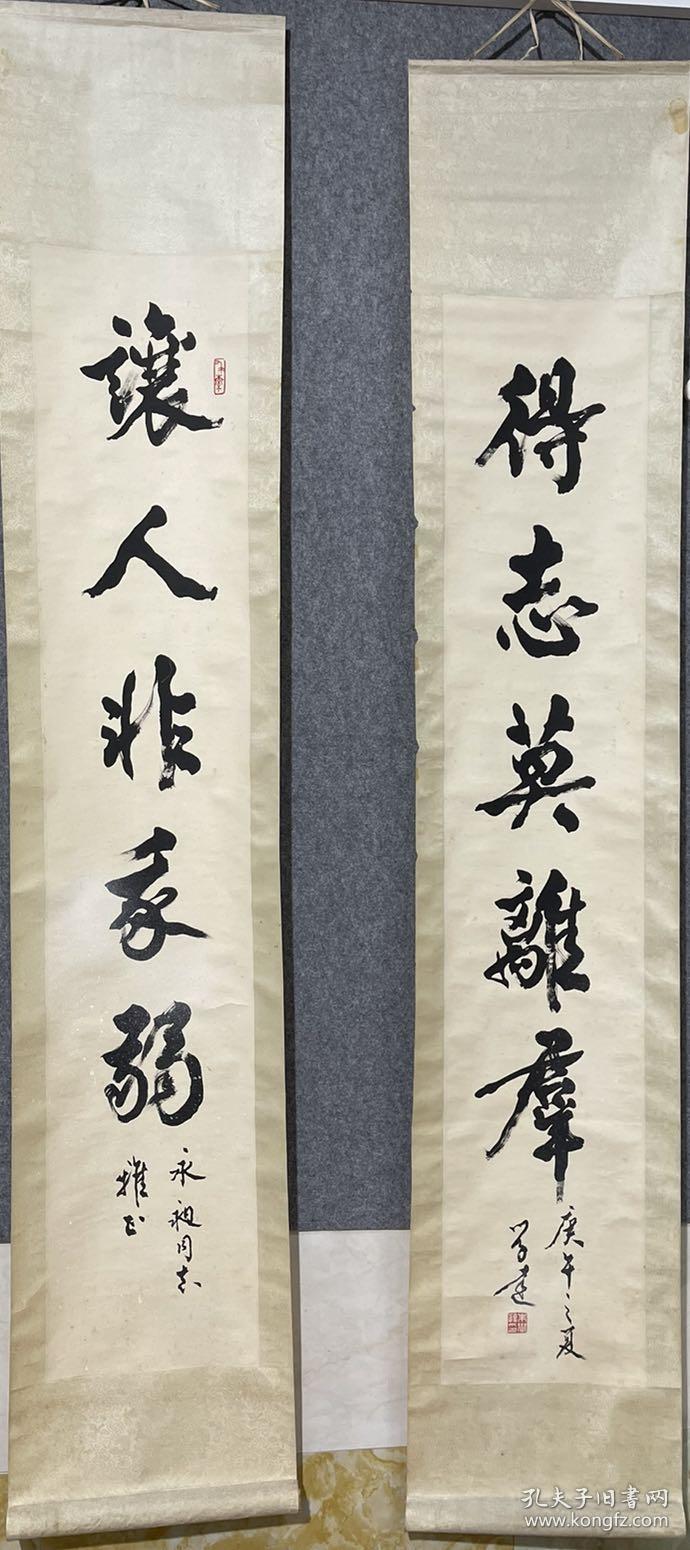 讓人非我弱
永昶同志
雅正
得志莫離群
庚午之夏
学建
孔夫子旧书网
www.kongfz.com